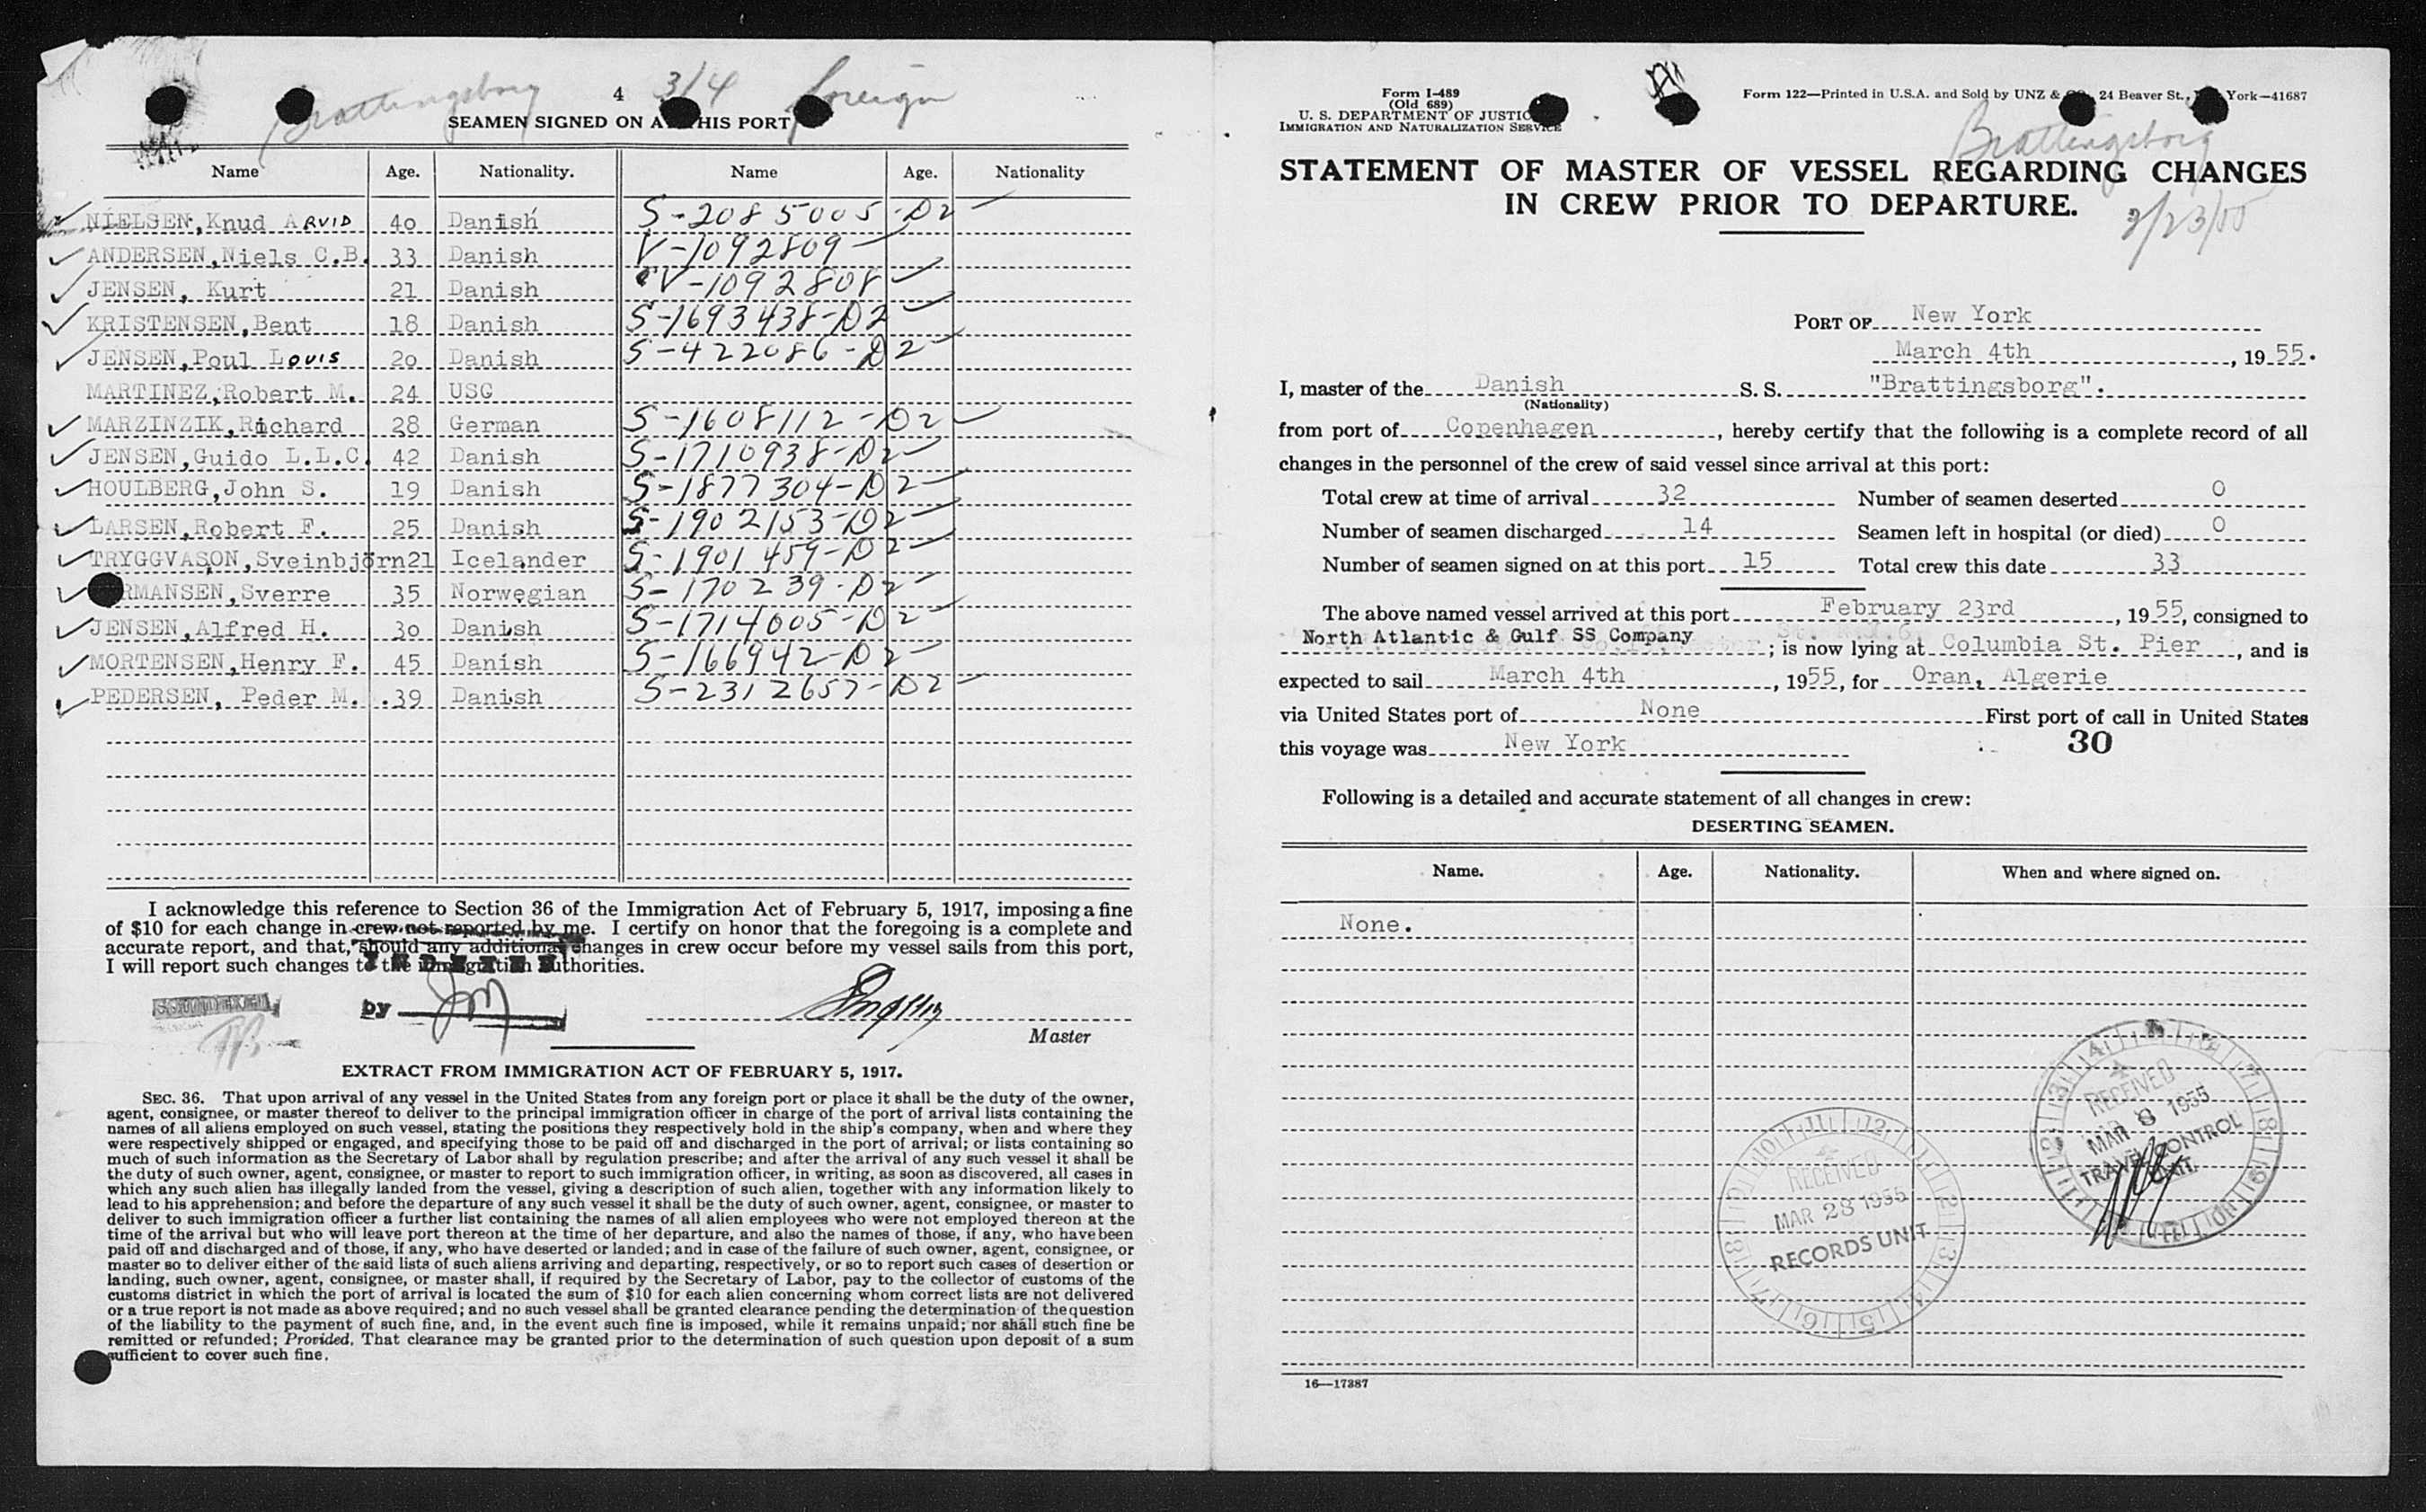 Brattingsborg 3/4 foreign
4
SEAMEN SIGNED ON A HIS PORT
Name Age. Nationality. Name Age. Nationality
NIELSEN, Knud ARVID 40 Danish S-2085005-D2
ANDERSEN, Niels C.B. 33 Danish V-1092809
JENSEN, Kurt 21 Danish V-1092808
KRISTENSEN, Bent 18 Danish S-1693438-D2
JENSEN, Poul Louis 20 Danish S-422086-D2
MARTINEZ, Robert M. 24 USG
MARZINZIK, Richard 28 German S-1608112-D2
JENSEN, Guido L.L.C. 42 Danish S-1710938-D2
HOULBERG, John S. 19 Danish S-1877304-D2
LARSEN, Robert F. 25 Danish S-1902153-D2
TRYGGVASON, Sveinbjörn 21 Icelander S-1901459-D2
RMANSEN, Sverre 35 Norwegian S-170239-D2
JENSEN, Alfred H. 30 Danish S-1714005-D2
MORTENSEN, Henry F. 45 Danish S-166942-D2
PEDERSEN, Peder M. 39 Danish S-2312657-D2
I acknowledge this reference to Section 36 of the Immigration Act of February 5, 1917, imposing a fine
of $10 for each change in crew not reported by me. I certify on honor that the foregoing is a complete and
accurate report, and that, should any additional changes in crew occur before my vessel sails from this port,
I will report such changes to the immigration authorities.
by JM
Master
EXTRACT FROM IMMIGRATION ACT OF FEBRUARY 5, 1917.
SEC. 36. That upon arrival of any vessel in the United States from any foreign port or place it shall be the duty of the owner,
agent, consignee, or master thereof to deliver to the principal immigration officer in charge of the port of arrival lists containing the
names of all aliens employed on such vessel, stating the positions they respectively hold in the ship's company, when and where they
were respectively shipped or engaged, and specifying those to be paid off and discharged in the port of arrival; or lists containing so
much of such information as the Secretary of Labor shall by regulation prescribe; and after the arrival of any such vessel it shall be
the duty of such owner, agent, consignee, or master to report to such immigration officer, in writing, as soon as discovered, all cases in
which any such alien has illegally landed from the vessel, giving a description of such alien, together with any information likely to
lead to his apprehension; and before the departure of any such vessel it shall be the duty of such owner, agent, consignee, or master to
deliver to such immigration officer a further list containing the names of all alien employees who were not employed thereon at the
time of the arrival but who will leave port thereon at the time of her departure, and also the names of those, if any, who have been
paid off and discharged and of those, if any, who have deserted or landed; and in case of the failure of such owner, agent, consignee, or
master so to deliver either of the said lists of such aliens arriving and departing, respectively, or so to report such cases of desertion or
landing, such owner, agent, consignee, or master shall, if required by the Secretary of Labor, pay to the collector of customs of the
customs district in which the port of arrival is located the sum of $10 for each alien concerning whom correct lists are not delivered
or a true report is not made as above required; and no such vessel shall be granted clearance pending the determination of the question
of the liability to the payment of such fine, and, in the event such fine is imposed, while it remains unpaid; nor shall such fine be
remitted or refunded; Provided, That clearance may be granted prior to the determination of such question upon deposit of a sum
sufficient to cover such fine.
Form I-489
(Old 689)
U. S. DEPARTMENT OF JUSTIC
IMMIGRATION AND NATURALIZATION SERVICE
Form 122—Printed in U.S.A. and Sold by UNZ & CO., 24 Beaver St., York—41687
Brattingsborg
STATEMENT OF MASTER OF VESSEL REGARDING CHANGES
IN CREW PRIOR TO DEPARTURE.
2/23/55
PORT OF New York
March 4th, 1955.
I, master of the Danish S. S. "Brattingsborg".
(Nationality)
from port of Copenhagen, hereby certify that the following is a complete record of all
changes in the personnel of the crew of said vessel since arrival at this port:
Total crew at time of arrival 32 Number of seamen deserted 0
Number of seamen discharged 14 Seamen left in hospital (or died) 0
Number of seamen signed on at this port 15 Total crew this date 33
The above named vessel arrived at this port February 23rd, 1955, consigned to
North Atlantic & Gulf SS Company; is now lying at Columbia St. Pier, and is
expected to sail March 4th, 1955, for Oran, Algerie
via United States port of None First port of call in United States
this voyage was New York
30
Following is a detailed and accurate statement of all changes in crew:
DESERTING SEAMEN.
Name. Age. Nationality. When and where signed on.
None.
RECEIVED
MAR 8 1955
TRAVEL CONTROL
UNIT
RECEIVED
MAR 28 1955
RECORDS UNIT
16—17387